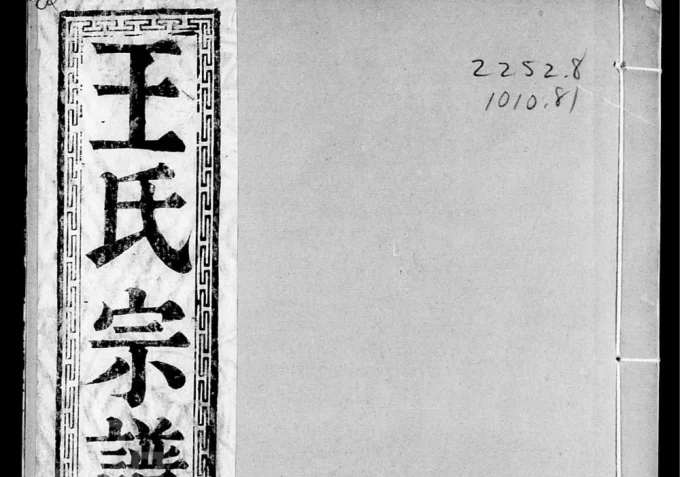 王氏宗譜
2252.8
1010.81